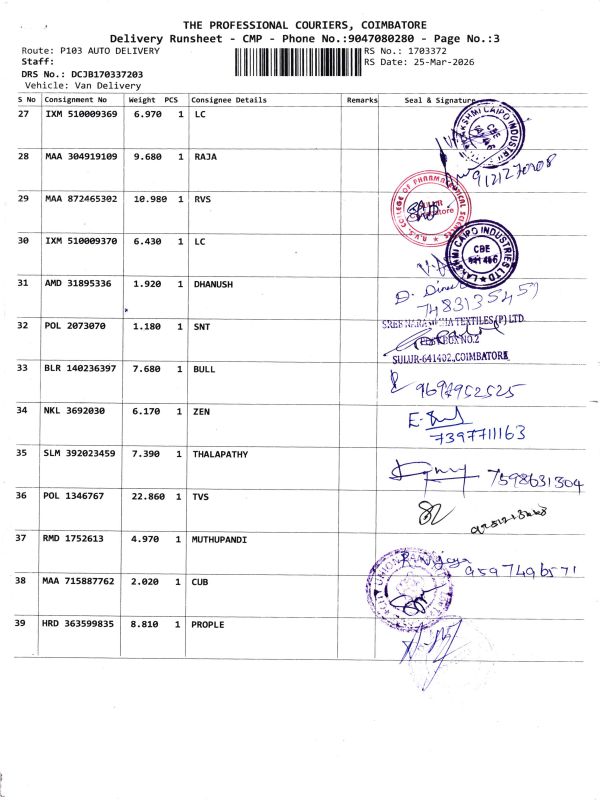 THE PROFESSIONAL COURIERS, COIMBATORE
Delivery Runsheet - CMP - Phone No.:9047080280 - Page No.:3
Route: P103 AUTO DELIVERY RS No.: 1703372
Staff: RS Date: 25-Mar-2026
DRS No.: DCJB170337203
Vehicle: Van Delivery
S No Consignment No Weight PCS Consignee Details Remarks Seal & Signature
27 IXM 510009369 6.970 1 LC
LAKSHMI CAIPO INDUSTRIES
CBE
28 MAA 304919109 9.680 1 RAJA
29 MAA 872465302 10.980 1 RVS
R.V.S. COLLEGE OF PHARMACEUTICAL SCIENCES
30 IXM 510009370 6.430 1 LC
LAKSHMI CAIPO INDUSTRIES LTD
CBE
31 AMD 31895336 1.920 1 DHANUSH
7483135459
32 POL 2073070 1.180 1 SNT
TEXTILES (P) LTD.
SULUR-641402, COIMBATORE
33 BLR 140236397 7.680 1 BULL
9697952525
34 NKL 3692030 6.170 1 ZEN
7397711163
35 SLM 392023459 7.390 1 THALAPATHY
7598631304
36 POL 1346767 22.860 1 TVS
37 RMD 1752613 4.970 1 MUTHUPANDI
9597496571
38 MAA 715887762 2.020 1 CUB
39 HRD 363599835 8.810 1 PROPLE